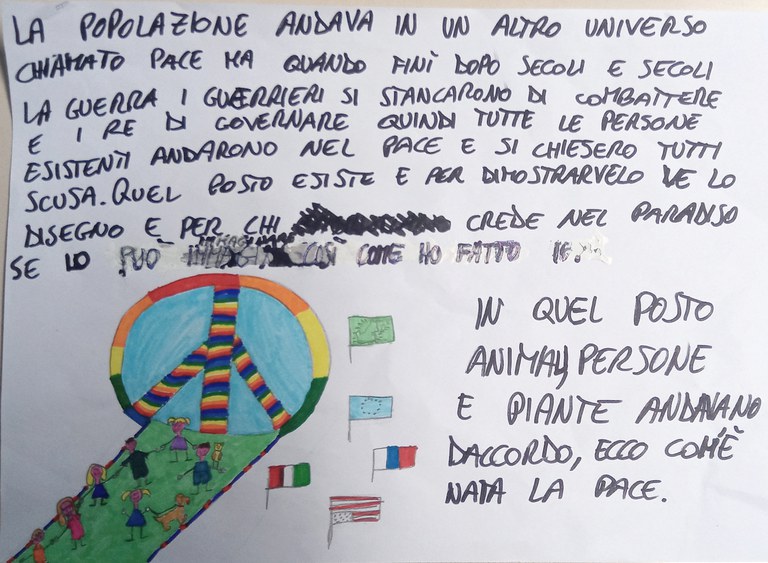 LA POPOLAZIONE ANDAVA IN UN ALTRO UNIVERSO
CHIAMATO PACE MA QUANDO FINÌ DOPO SECOLI E SECOLI
LA GUERRA I GUERRIERI SI STANCARONO DI COMBATTERE
E I RE DI GOVERNARE QUINDI TUTTE LE PERSONE
ESISTENTI ANDARONO NEL PACE E SI CHIESERO TUTTI
SCUSA. QUEL POSTO ESISTE E PER DIMOSTRARVELO VE LO
DISEGNO E PER CHI CREDE NEL PARADISO
SE LO PUÒ COSÌ COME HO FATTO IO.
IN QUEL POSTO
ANIMALI, PERSONE
E PIANTE ANDAVANO
DACCORDO, ECCO COM'È
NATA LA PACE.